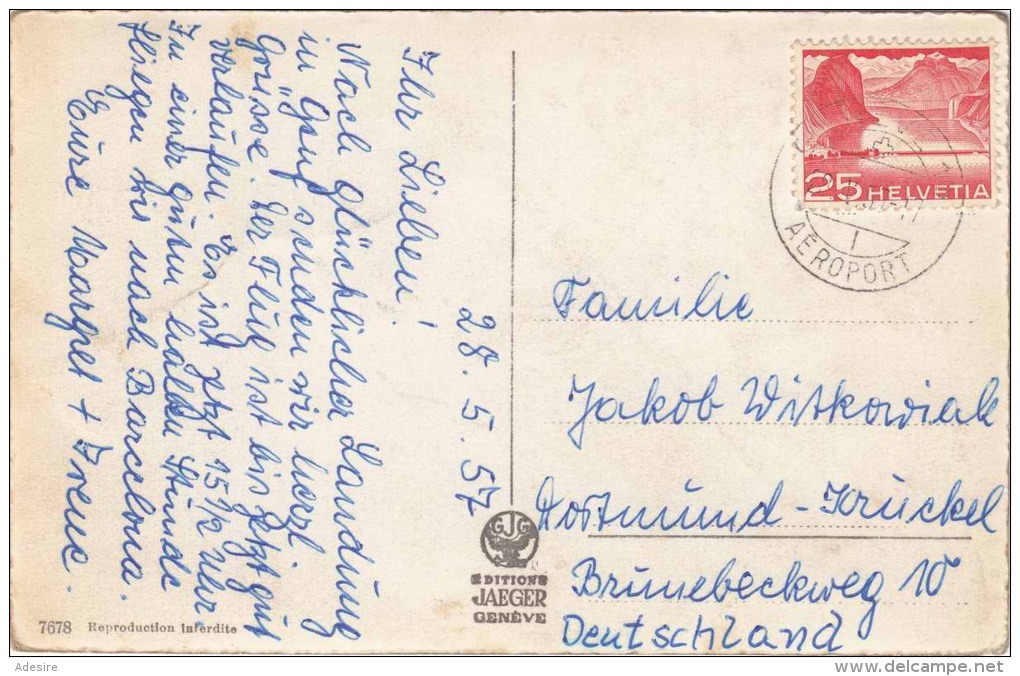 28. 5. 57
Ihr Lieben!
Nach glücklicher Landung
in "Genf senden wir herzl.
Grüsse. Der Flug ist bis jetzt gut
verlaufen. Es ist jetzt 15 1/2 Uhr.
In einer guten halben Stunde
fliegen wir nach Barcelona.
Eure Margret + Irene.
7678 Reproduction interdite
GJG
EDITIONS
JAEGER
GENÈVE
25 HELVETIA
AÉROPORT
1
Familie
Jakob Witkowiak
Dortmund-Kruckel
Brunebeckweg 10
Deutschland
Adesire
www.delcampe.net